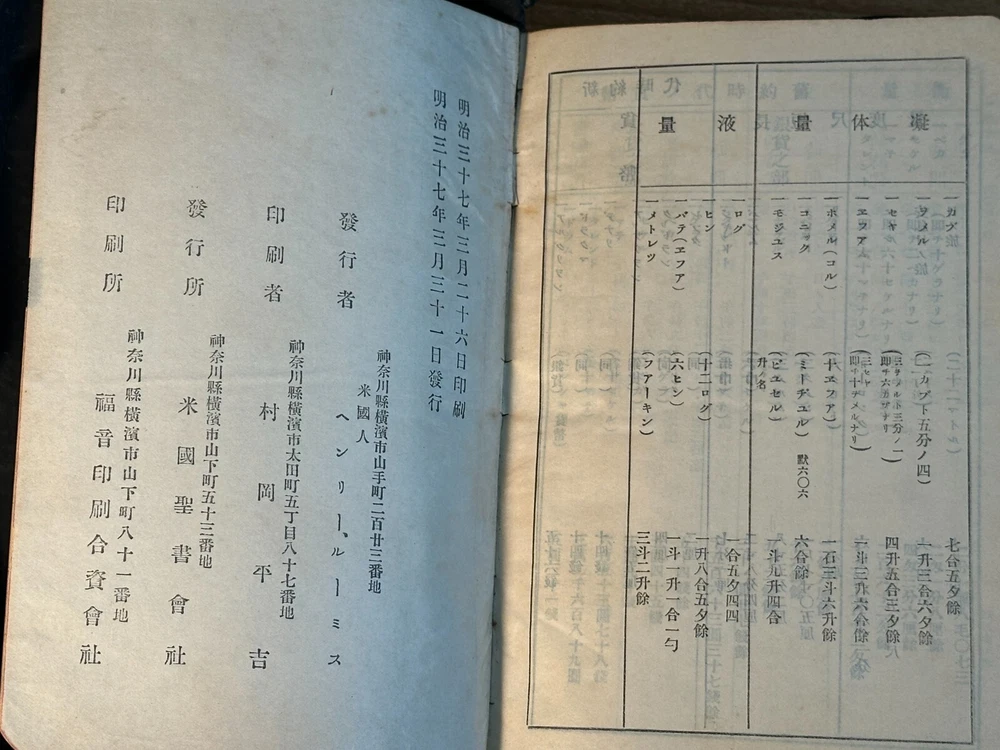 凝体量
一カブ
七合五夕餘
一ヲメル
(一カブト五分ノ四)
一升三合六夕餘
一セヤ
(三ヲメルト三分ノ一即チ六カブナリ)
四升五合三夕餘
一エフア
(三セヤ即チ十ヲメルナリ)
一斗三升六合餘
一ホメル(コル)
(十エフア)
一石三斗六升餘
一コニック
(ミードヂユル) 默六〇六
六合餘
一モジユス
(ビエセル)升ノ名
一斗九升四合
液量
一ログ
一合五夕四四
一ヒン
(十二ログ)
一升八合五夕餘
一バテ(エフア)
(六ヒン)
一斗一升一合一勺
一メトレツ
(フアーキン)
三斗二升餘
明治三十七年三月二十六日印刷
明治三十七年三月三十一日發行
神奈川縣横濱市山手町二百廿三番地
米國人
發行者 ヘンリー、ルーミス
神奈川縣横濱市太田町五丁目八十七番地
印刷者 村岡平吉
神奈川縣横濱市山下町五十三番地
發行所 米國聖書會社
神奈川縣横濱市山下町八十一番地
印刷所 福音印刷合資會社